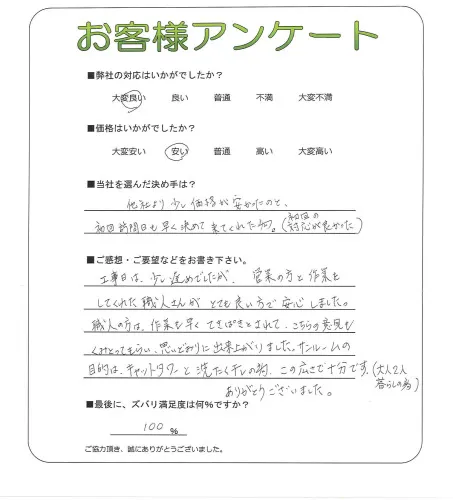 お客様アンケート
■弊社の対応はいかがでしたか？
大変良い 良い 普通 不満 大変不満
■価格はいかがでしたか？
大変安い 安い 普通 高い 大変高い
■当社を選んだ決め手は？
他社より少し価格が安かったのと、
初回訪問日も早く決めて来てくれた為。(初回の対応が良かった)
■ご感想・ご要望などをお書き下さい。
工事日は、少し遅めでしたが、営業の方と作業を
してくれた職人さんがとても良い方で安心しました。
職人の方は、作業も早くてきぱきとされて、こちらの意見も
くみとってもらい、思いどおりに出来上がりました。サンルームの
目的は、キャットタワーと洗たく干しの為、この広さで十分です。(大人2人暮らしの為)
ありがとうございました。
■最後に、ズバリ満足度は何％ですか？
100 %
ご協力頂き、誠にありがとうございました。